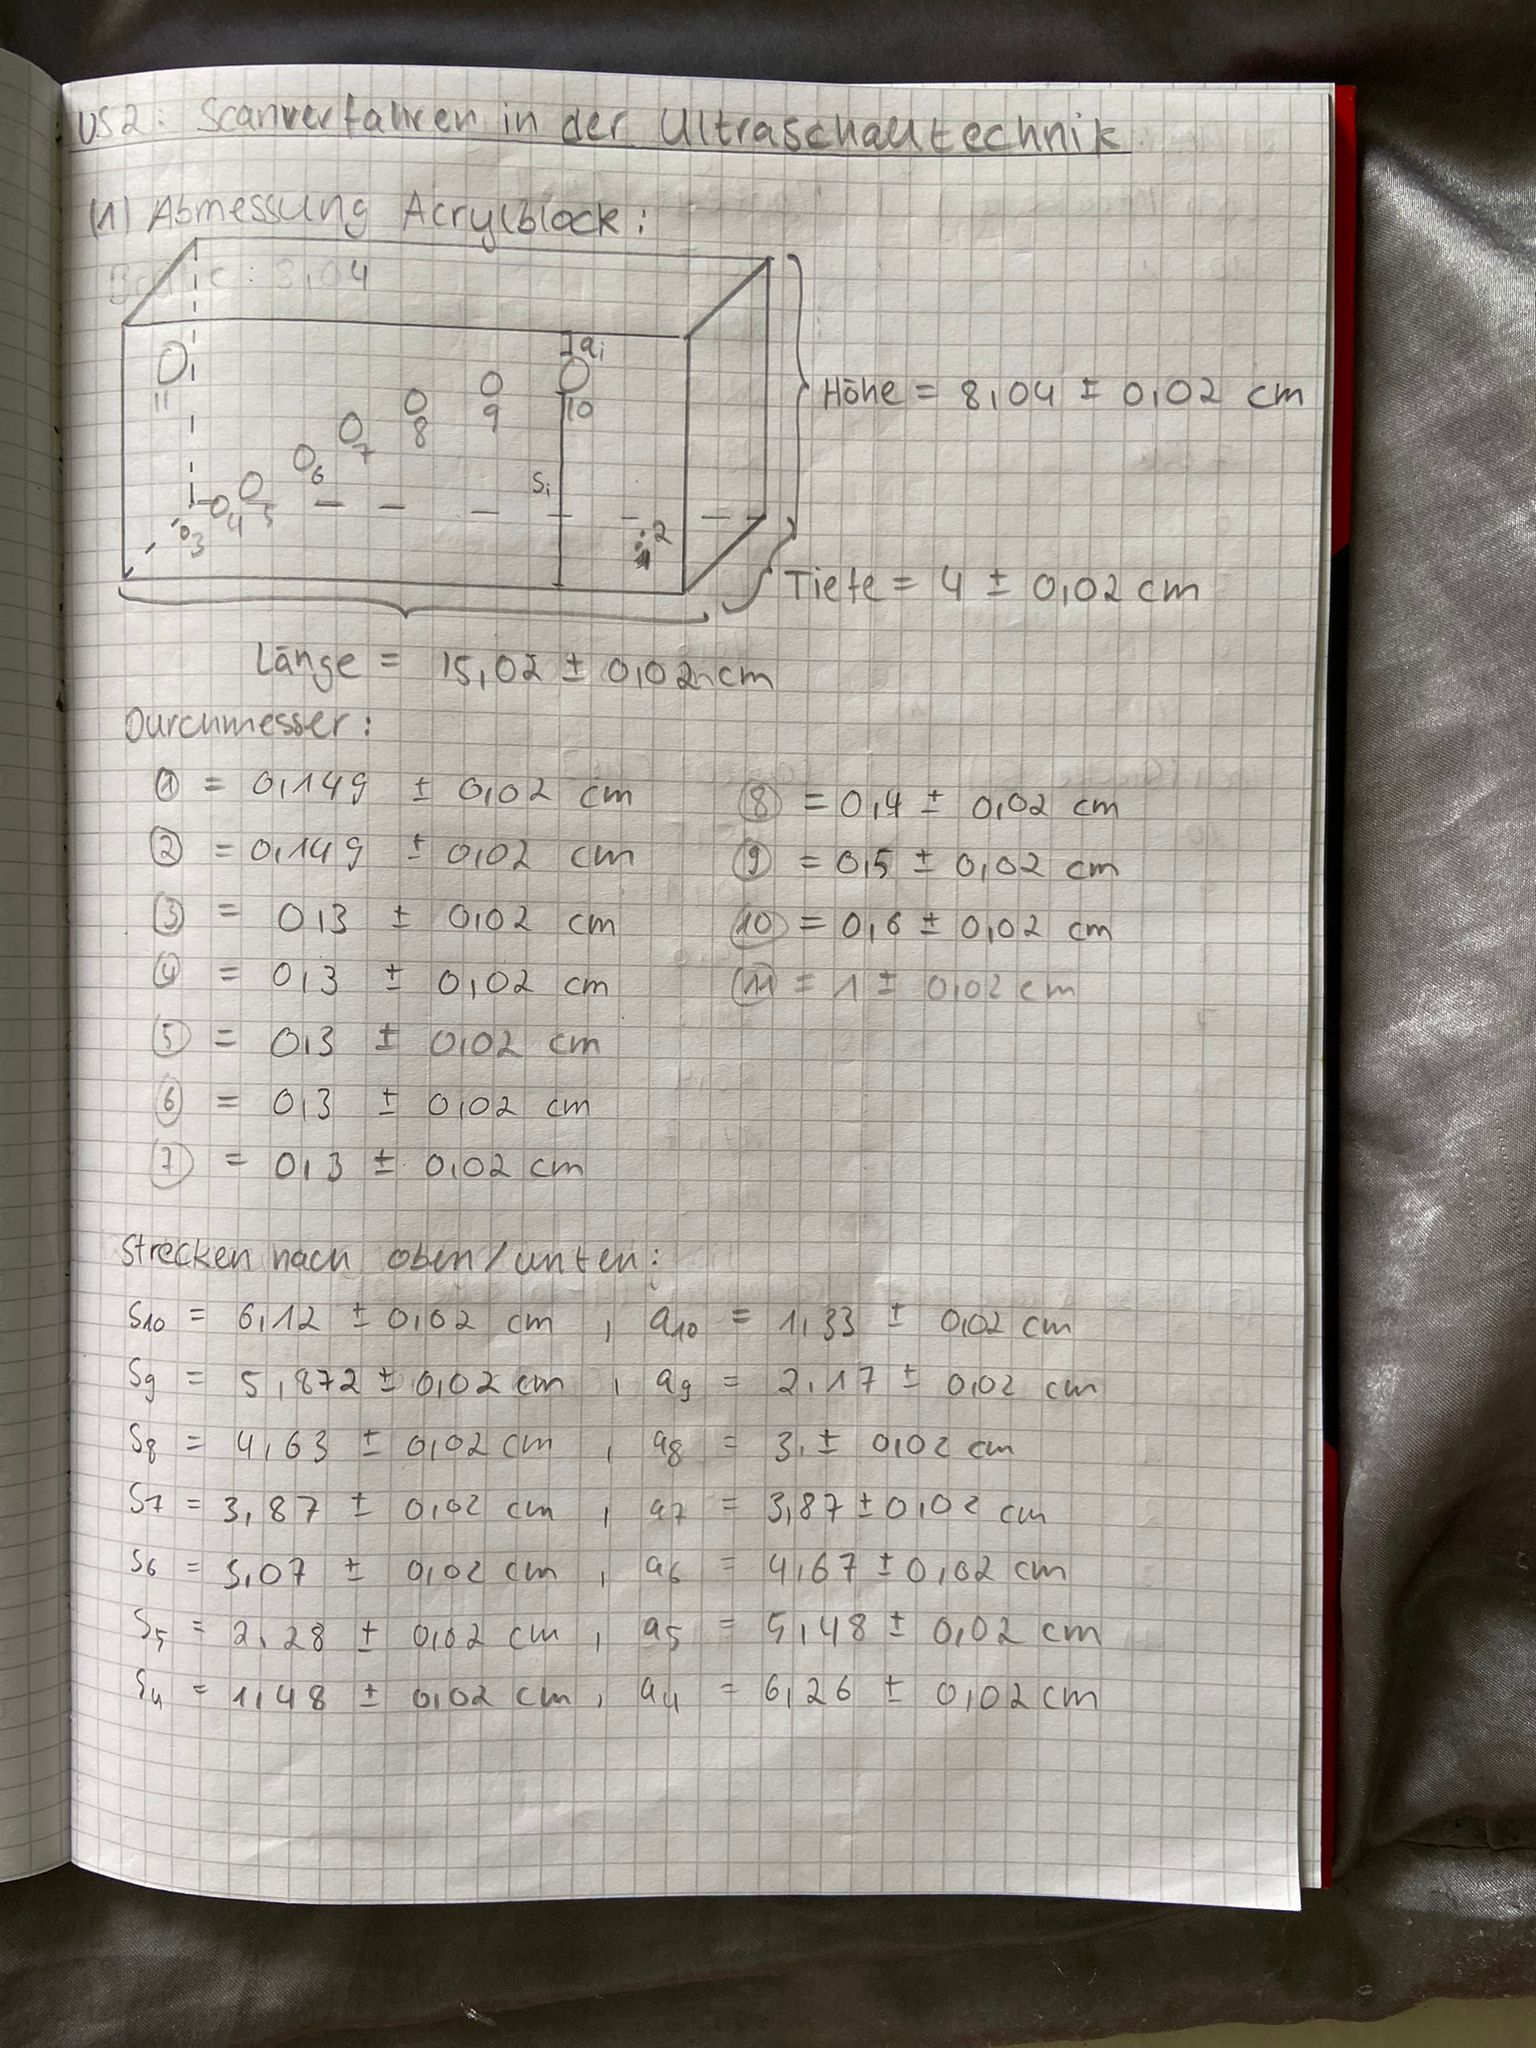 US2: Scanverfahren in der Ultraschalltechnik
(1) Abmessung Acrylblock:
: 8,04
ai
11
8
9
10
7
6
Si
3
4
5
2
1
Höhe = 8,04 ± 0,02 cm
Tiefe = 4 ± 0,02 cm
Länge = 15,02 ± 0,02 cm
Durchmesser:
① = 0,149 ± 0,02 cm
② = 0,149 ± 0,02 cm
③ = 0,3 ± 0,02 cm
④ = 0,3 ± 0,02 cm
⑤ = 0,3 ± 0,02 cm
⑥ = 0,3 ± 0,02 cm
⑦ = 0,3 ± 0,02 cm
⑧ = 0,4 ± 0,02 cm
⑨ = 0,5 ± 0,02 cm
⑩ = 0,6 ± 0,02 cm
⑪ = 1 ± 0,02 cm
Strecken nach oben/unten:
S10 = 6,12 ± 0,02 cm , a10 = 1,33 ± 0,02 cm
S9 = 5,872 ± 0,02 cm , a9 = 2,17 ± 0,02 cm
S8 = 4,63 ± 0,02 cm , a8 = 3, ± 0,02 cm
S7 = 3,87 ± 0,02 cm , a7 = 3,87 ± 0,02 cm
S6 = 3,07 ± 0,02 cm , a6 = 4,67 ± 0,02 cm
S5 = 2,28 ± 0,02 cm , a5 = 5,48 ± 0,02 cm
S4 = 1,48 ± 0,02 cm , a4 = 6,26 ± 0,02 cm